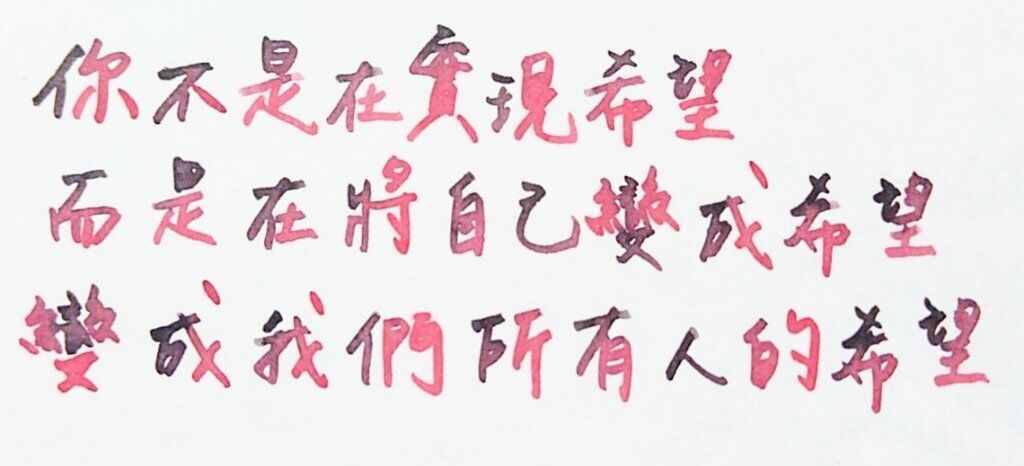 你不是在實現希望
而是在將自己變成希望
變成我們所有人的希望